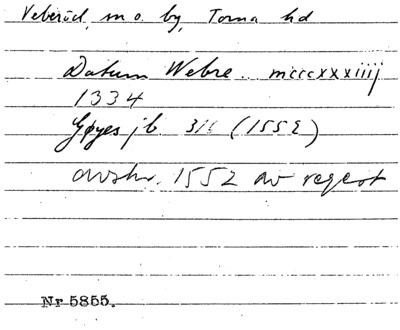 Veberöd, m o. by, Torna hd
Datum Webre .. mcccxxxiiij
1334
Gøyes jb 316 (1552)
avskr. 1552 av regest
Nr 5855.